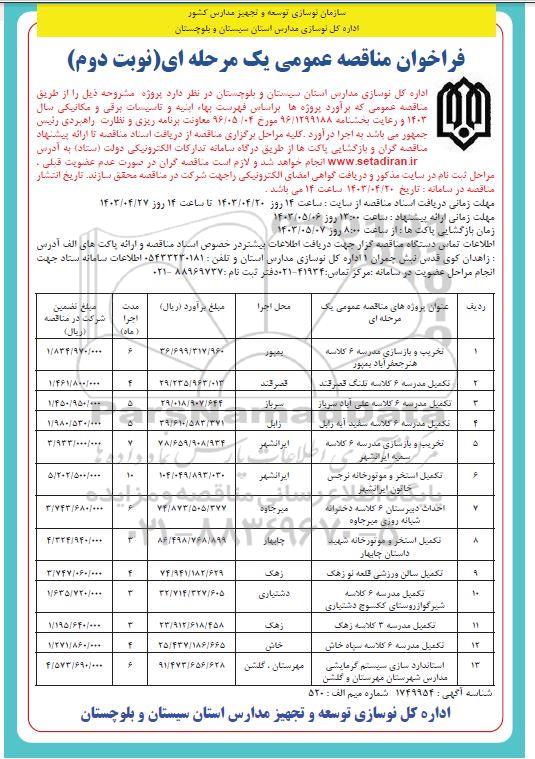 سازمان نوسازی توسعه و تجهیز مدارس کشور
اداره کل نوسازی مدارس استان سیستان و بلوچستان
فراخوان مناقصه عمومی یک مرحله ای(نوبت دوم)
اداره کل نوسازی مدارس استان سیستان و بلوچستان در نظر دارد پروژه مشروحه ذیل را از طریق
مناقصه عمومی که برآورد پروژه ها براساس فهرست بهاء ابنیه و تاسیسات برقی و مکانیکی سال
۱۴۰۳ و رعایت بخشنامه ۹۶/۱۲۹۹۱۸۸ مورخ ۹۶/۰۵/۰۴ معاونت برنامه ریزی و نظارت راهبردی رئیس
جمهور می باشد به اجرا درآورد .کلیه مراحل برگزاری مناقصه از دریافت اسناد مناقصه تا ارائه پیشنهاد
مناقصه گران و بازگشایی پاکت ها از طریق درگاه سامانه تدارکات الکترونیکی دولت (ستاد) به آدرس
www.setadiran.ir انجام خواهد شد و لازم است مناقصه گران در صورت عدم عضویت قبلی ،
مراحل ثبت نام در سایت مذکور و دریافت گواهی امضای الکترونیکی راجهت شرکت در مناقصه محقق سازند. تاریخ انتشار
مناقصه در سامانه : تاریخ ۱۴۰۳/۰۴/۲۰ ساعت ۱۴ می باشد .
مهلت زمانی دریافت اسناد مناقصه از سایت : ساعت ۱۴ روز ۱۴۰۳/۰۴/۲۰ تا ساعت ۱۴ روز ۱۴۰۳/۰۴/۲۷
مهلت زمانی ارائه پیشنهاد : ساعت ۱۲:۰۰ روز ۱۴۰۳/۰۵/۰۶
زمان بازگشایی پاکت ها : از ساعت ۸:۰۰ روز ۱۴۰۳/۰۵/۰۷
اطلاعات تماس دستگاه مناقصه گزار جهت دریافت اطلاعات بیشتردر خصوص اسناد مناقصه و ارائه پاکت های الف آدرس
: زاهدان کوی قدس نبش چمران ۱ اداره کل نوسازی مدارس استان و تلفن : ۰۵۴۳۳۲۳۰۱۸۱ اطلاعات سامانه ستاد جهت
انجام مراحل عضویت در سامانه :مرکز تماس:۴۱۹۳۴-۰۲۱دفتر ثبت نام :۸۸۹۶۹۷۳۷ -۰۲۱
ردیف عنوان پروژه های مناقصه عمومی یک مرحله ای محل اجرا مبلغ برآورد (ریال) مدت اجرا (ماه) مبلغ تضمین شرکت در مناقصه (ریال)
۱ تخریب و بازسازی مدرسه ۶ کلاسه هنرجعفرآباد بمپور بمپور ۳۶/۶۹۹/۳۱۷/۹۶۰ ۶ ۱/۸۳۴/۹۷۰/۰۰۰
۲ تکمیل مدرسه ۶ کلاسه تلنگ قصرقند قصرقند ۲۹/۲۳۵/۹۶۳/۰۱۳ ۴ ۱/۴۶۱/۸۰۰/۰۰۰
۳ تکمیل مدرسه ۶ کلاسه علی آباد سرباز سرباز ۲۹/۰۱۸/۹۰۷/۶۴۴ ۵ ۱/۴۵۰/۹۵۰/۰۰۰
۴ تکمیل مدرسه ۶ کلاسه سفید آبه زابل زابل ۳۹/۶۱۰/۵۸۳/۳۷۱ ۵ ۱/۹۸۰/۵۳۰/۰۰۰
۵ تخریب و بازسازی مدرسه ۶ کلاسه سمیه ایرانشهر ایرانشهر ۷۸/۶۵۹/۹۰۸/۹۳۴ ۷ ۳/۹۳۳/۰۰۰/۰۰۰
۶ تکمیل استخر و موتورخانه نرجس خاتون ایرانشهر ایرانشهر ۱۰۴/۰۴۹/۸۹۳/۰۳۰ ۱۰ ۵/۲۰۲/۵۰۰/۰۰۰
۷ احداث دبیرستان ۶ کلاسه دخترانه شبانه روزی میرجاوه میرجاوه ۷۴/۸۷۳/۵۰۵/۳۷۷ ۶ ۳/۷۴۳/۶۸۰/۰۰۰
۸ تکمیل استخر و موتورخانه شهید داستان چابهار چابهار ۸۶/۴۹۸/۷۶۸/۸۹۹ ۳ ۴/۳۲۴/۹۴۰/۰۰۰
۹ تکمیل سالن ورزشی قلعه نو زهک زهک ۷۴/۹۴۱/۱۸۲/۶۲۹ ۴ ۳/۷۴۷/۰۶۰/۰۰۰
۱۰ تکمیل مدرسه ۶ کلاسه شیرگوازروستای ککسوچ دشتیاری دشتیاری ۳۲/۷۱۴/۳۲۷/۶۰۵ ۳ ۱/۶۳۵/۷۲۰/۰۰۰
۱۱ تکمیل مدرسه ۳ کلاسه زهک زهک ۲۳/۹۱۲/۶۱۸/۴۵۸ ۳ ۱/۱۹۵/۶۴۰/۰۰۰
۱۲ تکمیل مدرسه ۶ کلاسه سیاه خاش خاش ۲۵/۴۳۷/۱۸۶/۶۶۵ ۴ ۱/۲۷۱/۸۶۰/۰۰۰
۱۳ استاندارد سازی سیستم گرمایشی مدارس شهرستان مهرستان و گلشن مهرستان ، گلشن ۹۱/۴۷۳/۶۵۶/۶۲۸ ۶ ۴/۵۷۳/۶۹۰/۰۰۰
شناسه آگهی : ۱۷۴۹۹۵۴ شماره میم الف : ۵۲۰
اداره کل نوسازی توسعه و تجهیز مدارس استان سیستان و بلوچستان
ParsNamadData
پایگاه اطلاع رسانی مناقصه و مزایده
۰۲۱-۸۸۳۴۹۶۷۰-۵